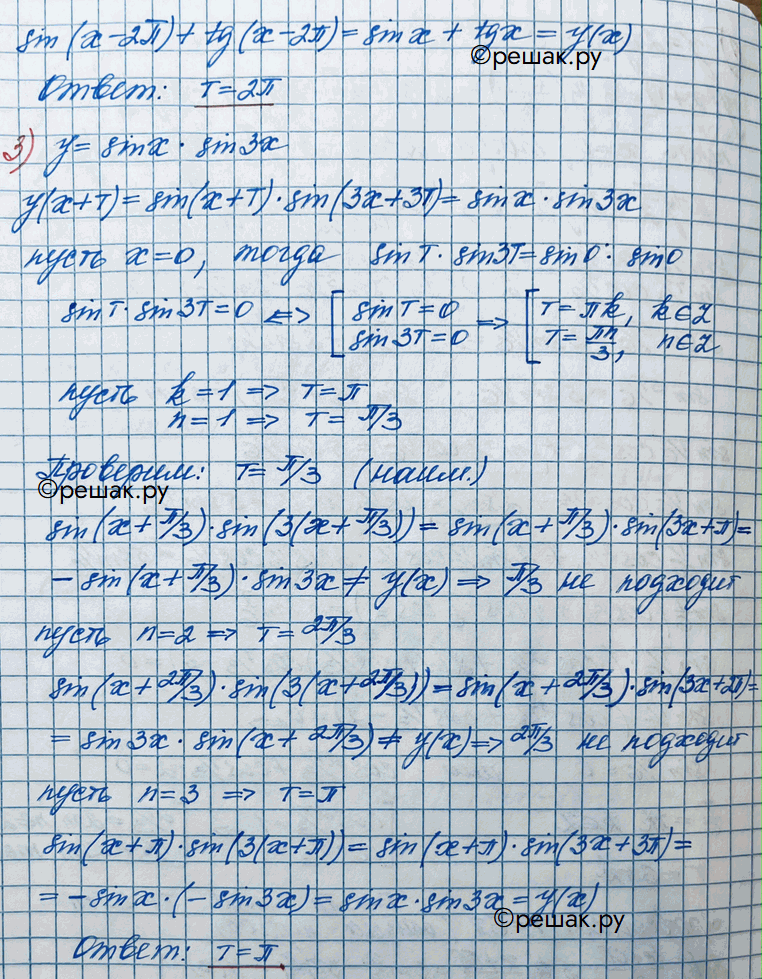 sin(x-2π)+tg(x-2π)=sinx+tgx=y(x)
©решак.ру
Ответ: T=2π
3) y=sinx·sin3x
y(x+T)=sin(x+T)·sin(3x+3T)=sinx·sin3x
пусть x=0, тогда sinT·sin3T=sin0·sin0
sinT·sin3T=0 <=> [sinT=0 => [T=πk, k∈Z
sin3T=0 T=πn/3, n∈Z
пусть k=1 => T=π
n=1 => T=π/3
Проверим: T=π/3 (наим.)
©решак.ру
sin(x+π/3)·sin(3(x+π/3))=sin(x+π/3)·sin(3x+π)=
-sin(x+π/3)·sin3x≠y(x) => π/3 не подходит
пусть n=2 => T=2π/3
sin(x+2π/3)·sin(3(x+2π/3))=sin(x+2π/3)·sin(3x+2π)=
=sin3x·sin(x+2π/3)≠y(x) => 2π/3 не подходит
пусть n=3 => T=π
sin(x+π)·sin(3(x+π))=sin(x+π)·sin(3x+3π)=
=-sinx·(-sin3x)=sinx·sin3x=y(x)
©решак.ру
Ответ: T=π